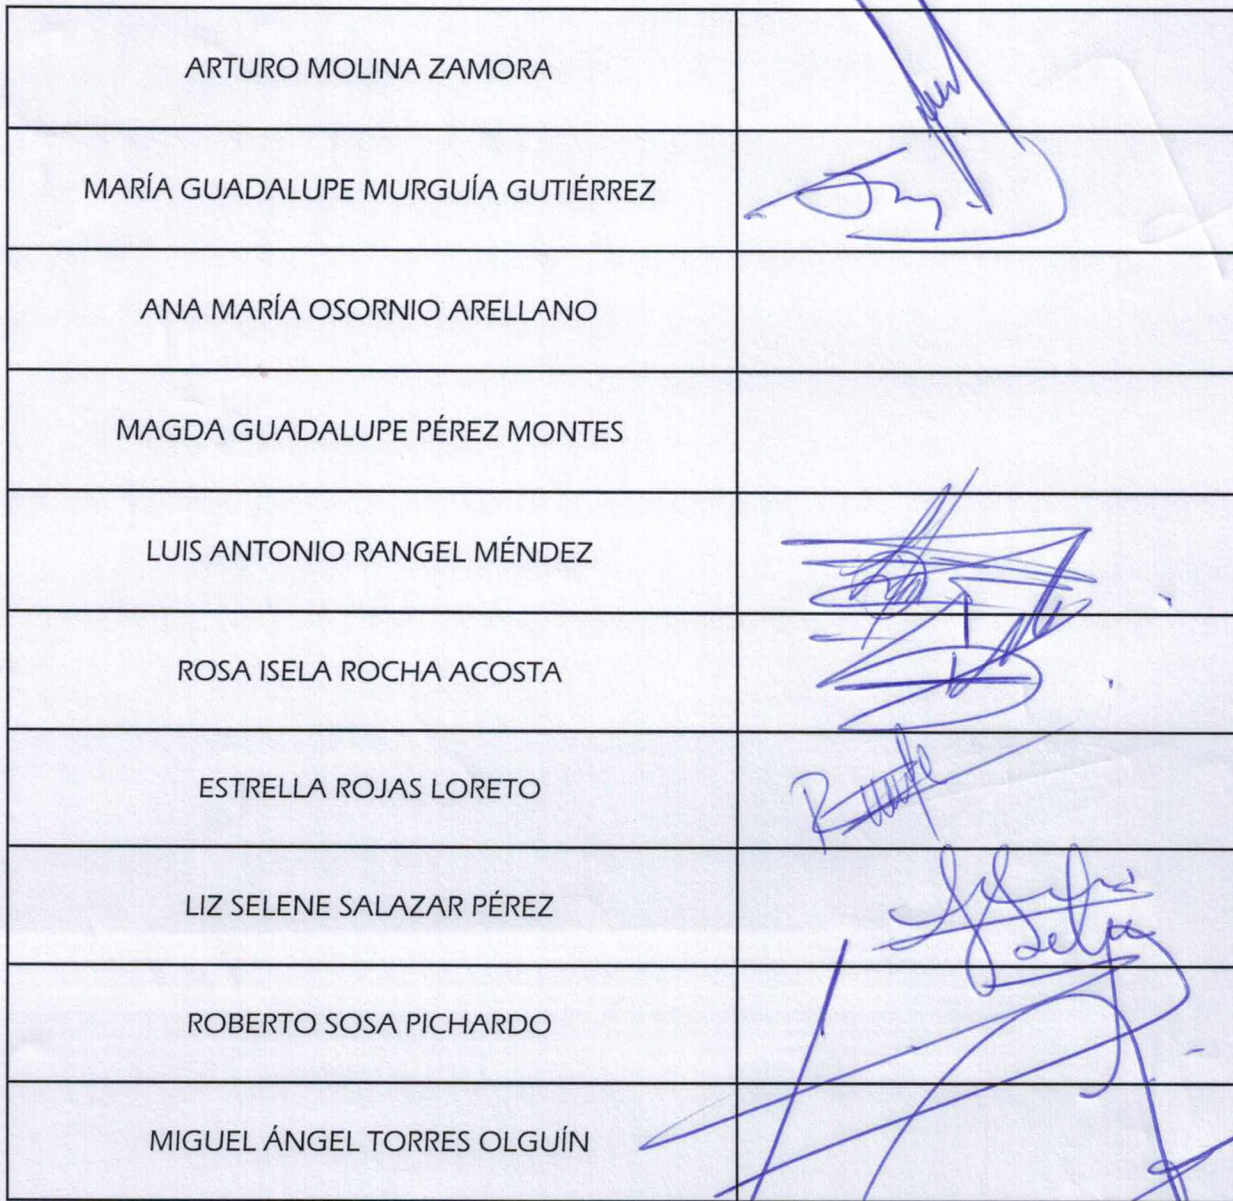 ARTURO MOLINA ZAMORA
MARÍA GUADALUPE MURGUÍA GUTIÉRREZ
ANA MARÍA OSORNIO ARELLANO
MAGDA GUADALUPE PÉREZ MONTES
LUIS ANTONIO RANGEL MÉNDEZ
ROSA ISELA ROCHA ACOSTA
ESTRELLA ROJAS LORETO
LIZ SELENE SALAZAR PÉREZ
ROBERTO SOSA PICHARDO
MIGUEL ÁNGEL TORRES OLGUÍN